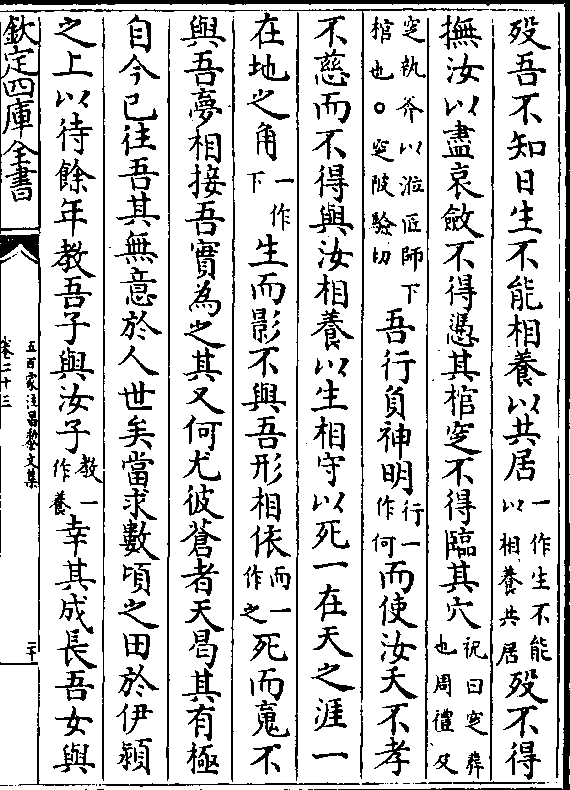 歿吾不知日生不能相養以共居一作生不能以相養共居歿不得
撫汝以盡哀斂不得憑其棺窆不得臨其穴祝曰窆葬也周禮及
窆執斧以涖匠師下棺也○窆陂驗切吾行負神明行一作何而使汝夭不孝
不慈而不得與汝相養以生相守以死一在天之涯一
在地之角一作下生而影不與吾形相依而一作之死而䰟不
與吾夢相接吾實為之其又何尤彼蒼者天曷其有極
自今已往吾其無意於人世矣當求數頃之田於伊潁
之上以待餘年教吾子與汝子教一作養幸其成長吾女與
欽定四庫全書
五百家注昌黎文集
卷二十三
二十